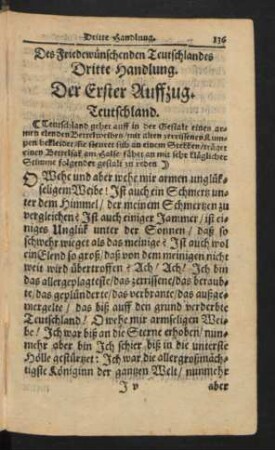 Dritte Handlung. 136
Des Friedewünschenden Teutschlandes
Dritte Handlung.
Der Erster Auffzug.
Teutschland.
(Teutschland gehet auff in der Gestalt einer ar-
men elenden Betrelweiben/mit alten zerrissenen Lum-
pen bekleidet/sie steuret sich an einem Stekken/träget
einen Bettelsak am Halse/fähet an mit sehr kläglicher
Stimme folgender gestalt zu reden)
O Wehe und aber wehe mir armen unglük-
seligem Weibe! Ist auch ein Schmertz un-
ter dem Himmel/ der meinem Schmertzen zu
vergleichen? Ist auch einiger Jammer/ ist ei-
niges Unglük unter der Sonnen/ daß so
schwehr wieger als das meinige? Ist auch wol
ein Elend so groß/ daß von dem meinigen nicht
weit wird übertroffen? Ach/ Ach/ Ich bin
das allergeplagteste/ das zerrissene/ das beraub-
te/ das geplünderte/ das verbrante/ das außge-
mergelte/ das biß auff den grund verderbte
Teutschland! O wehe mir armseligen Wei-
be! Ich war biß an die Sterne erhoben/ nun-
mehr aber bin Ich schier biß in die unterste
Hölle gestürtzet: Ich war die allergroßmäch-
tigste Königinn der gantzen Welt/ nunmehr
J v aber